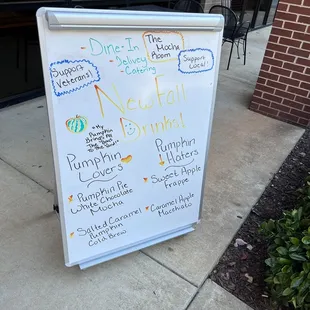 - Dine-In
- Delivery
- Catering
The
Mocha
Room
Support
Veterans!
Support
Local!
New Fall
Drinks!
"My
Pumpkin
Brings All
The
to the
Pumpkin
Lovers
Pumpkin Pie
White Chocolate
Mocha
Salted Caramel
Pumpkin
Cold Brew
Pumpkin
Haters
Sweet Apple
Frappe
Caramel Apple
Macchiato